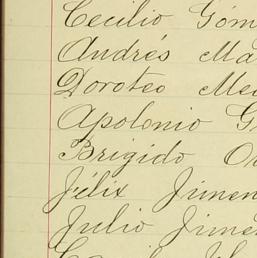 Cecilio Góm
Andrés Ma
Doroteo Me
Apolonio G
Brigido O
Félix Jimen
Julio Jime